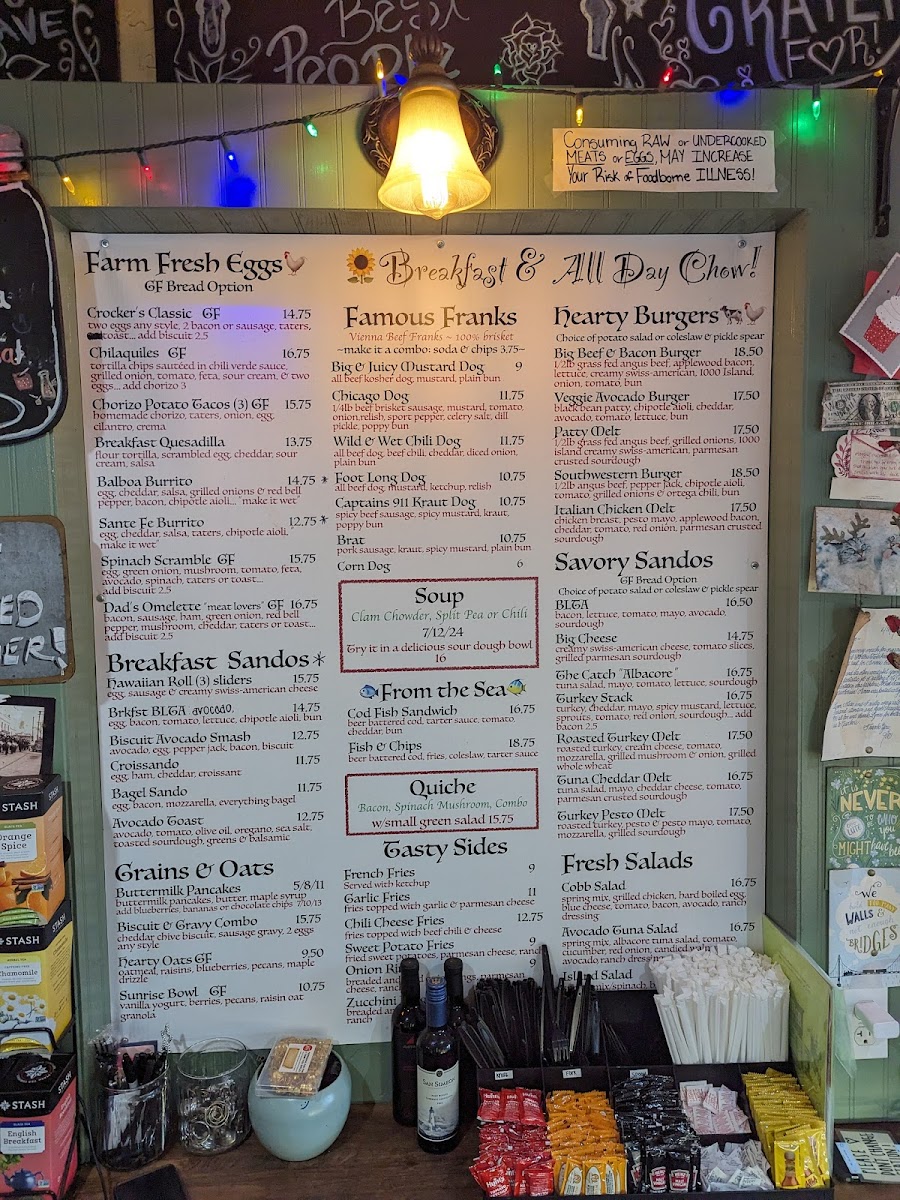 BEST
PEOPLE
GRATE
F♥R!
Consuming RAW or UNDERCOOKED
MEATS or EGGS, MAY INCREASE
Your Risk of Foodborne ILLNESS!
Farm Fresh Eggs
GF Bread Option
Crocker's Classic GF 14.75
two eggs any style, 2 bacon or sausage, taters,
toast... add biscuit 2.5
Chilaquiles GF 16.75
tortilla chips sauteed in chili verde sauce,
grilled onion, tomato, feta, sour cream, & two
eggs... add chorizo 3
Chorizo Potato Tacos (3) GF 15.75
homemade chorizo, taters, onion, egg,
cilantro, crema
Breakfast Quesadilla 13.75
flour tortilla, scrambled egg, cheddar, sour
cream, salsa
Balboa Burrito 14.75 *
egg, cheddar, salsa, grilled onions & red bell
pepper, bacon, chipotle aioli... "make it wet"
Sante Fe Burrito 12.75 *
egg, cheddar, salsa, taters, chipotle aioli,
"make it wet"
Spinach Scramble GF 15.75
egg, green onion, mushroom, tomato, feta,
avocado, spinach, taters or toast...
add biscuit 2.5
Dad's Omelette "meat lovers" GF 16.75
bacon, sausage, ham, green onion, red bell
pepper, mushroom, cheddar, taters or toast...
add biscuit 2.5
Breakfast Sandos *
Hawaiian Roll (3) sliders 15.75
egg, sausage & creamy swiss-american cheese
Brkfst BLTA avocado. 14.75
egg, bacon, tomato, lettuce, chipotle aioli, bun
Biscuit Avocado Smash 12.75
avocado, egg, pepper jack, bacon, biscuit
Croissando 11.75
egg, ham, cheddar, croissant
Bagel Sando 11.75
egg, bacon, mozzarella, everything bagel
Avocado Toast 12.75
avocado, tomato, olive oil, oregano, sea salt,
toasted sourdough, greens & balsamic
Grains & Oats
Buttermilk Pancakes 5/8/11
buttermilk pancakes, butter, maple syrup
add blueberries, bananas or chocolate chips 7/10/13
Biscuit & Gravy Combo 15.75
cheddar chive biscuit, sausage gravy, 2 eggs
any style
Hearty Oats GF 9.50
oatmeal, raisins, blueberries, pecans, maple
drizzle
Sunrise Bowl GF 10.75
vanilla yogurt, berries, pecans, raisin oat
granola
Breakfast & All Day Chow!
Famous Franks
Vienna Beef Franks ~ 100% brisket
~make it a combo: soda & chips 3.75~
Big & Juicy Mustard Dog 9
all beef kosher dog, mustard, plain bun
Chicago Dog 11.75
1/4lb beef brisket sausage, mustard, tomato,
onion,relish, sport pepper, celery salt, dill
pickle, poppy bun
Wild & Wet Chili Dog 11.75
all beef dog, beef chili, cheddar, diced onion,
plain bun
Foot Long Dog 10.75
all beef dog, mustard, ketchup, relish
Captains 911 Kraut Dog 10.75
spicy beef sausage, spicy mustard, kraut,
poppy bun
Brat 10.75
pork sausage, kraut, spicy mustard, plain bun
Corn Dog 6
Soup
Clam Chowder, Split Pea or Chili
7/12/24
Try it in a delicious sour dough bowl
16
From the Sea
Cod Fish Sandwich 16.75
beer battered cod, tarter sauce, tomato,
cheddar, bun
Fish & Chips 18.75
beer battered cod, fries, coleslaw, tarter sauce
Quiche
Bacon, Spinach Mushroom, Combo
w/small green salad 15.75
Tasty Sides
French Fries 9
Served with ketchup
Garlic Fries 11
fries topped with garlic & parmesan cheese
Chili Cheese Fries 12.75
fries topped with beef chili & cheese
Sweet Potato Fries 9
fried sweet potatoes, parmesan cheese, ranch
Onion Ri 9
breaded an
cheese, ranch
Zucchini
breaded an
ranch
Hearty Burgers
Choice of potato salad or coleslaw & pickle spear
Big Beef & Bacon Burger 18.50
1/2lb grass fed angus beef, applewood bacon,
lettuce, creamy swiss-american, 1000 Island,
onion, tomato, bun
Veggie Avocado Burger 17.50
black bean patty, chipotle aioli, cheddar,
avocado, tomato, lettuce, bun
Patty Melt 17.50
1/2lb grass fed angus beef, grilled onions, 1000
island creamy swiss-american, parmesan
crusted sourdough
Southwestern Burger 18.50
1/2lb angus beef, pepper jack, chipotle aioli,
tomato, grilled onions & ortega chili, bun
Italian Chicken Melt 17.50
chicken breast, pesto mayo, applewood bacon,
cheddar, tomato, red onion, parmesan crusted
sourdough
Savory Sandos
GF Bread Option
Choice of potato salad or coleslaw & pickle spear
BLTA 16.50
bacon, lettuce, tomato, mayo, avocado,
sourdough
Big Cheese 14.75
creamy swiss-american cheese, tomato slices,
grilled parmesan sourdough
The Catch "Albacore" 16.75
tuna salad, mayo, tomato, lettuce, sourdough
Turkey Stack 16.75
turkey, cheddar, mayo, spicy mustard, lettuce,
sprouts, tomato, red onion, sourdough... add
bacon 2.5
Roasted Turkey Melt 17.50
roasted turkey, cream cheese, tomato,
mozzarella, grilled mushroom & onion, grilled
whole wheat
Tuna Cheddar Melt 16.75
tuna salad, mayo, cheddar cheese, tomato,
parmesan crusted sourdough
Turkey Pesto Melt 17.50
roasted turkey, pesto & pesto mayo, tomato,
mozzarella, grilled sourdough
Fresh Salads
Cobb Salad 16.75
spring mix, grilled chicken, hard boiled egg,
blue cheese, tomato, bacon, avocado, ranch
dressing
Avocado Tuna Salad 16.75
spring mix, albacore tuna salad, tomato,
cucumber, red onion, candied
avocado, ranch
Island Salad
STASH
Orange
Spice
STASH
Chamomile
STASH
English
Breakfast
SAN SIMEON
FORK
NEVER
MIGHT
WE
WALLS &
BRIDGES